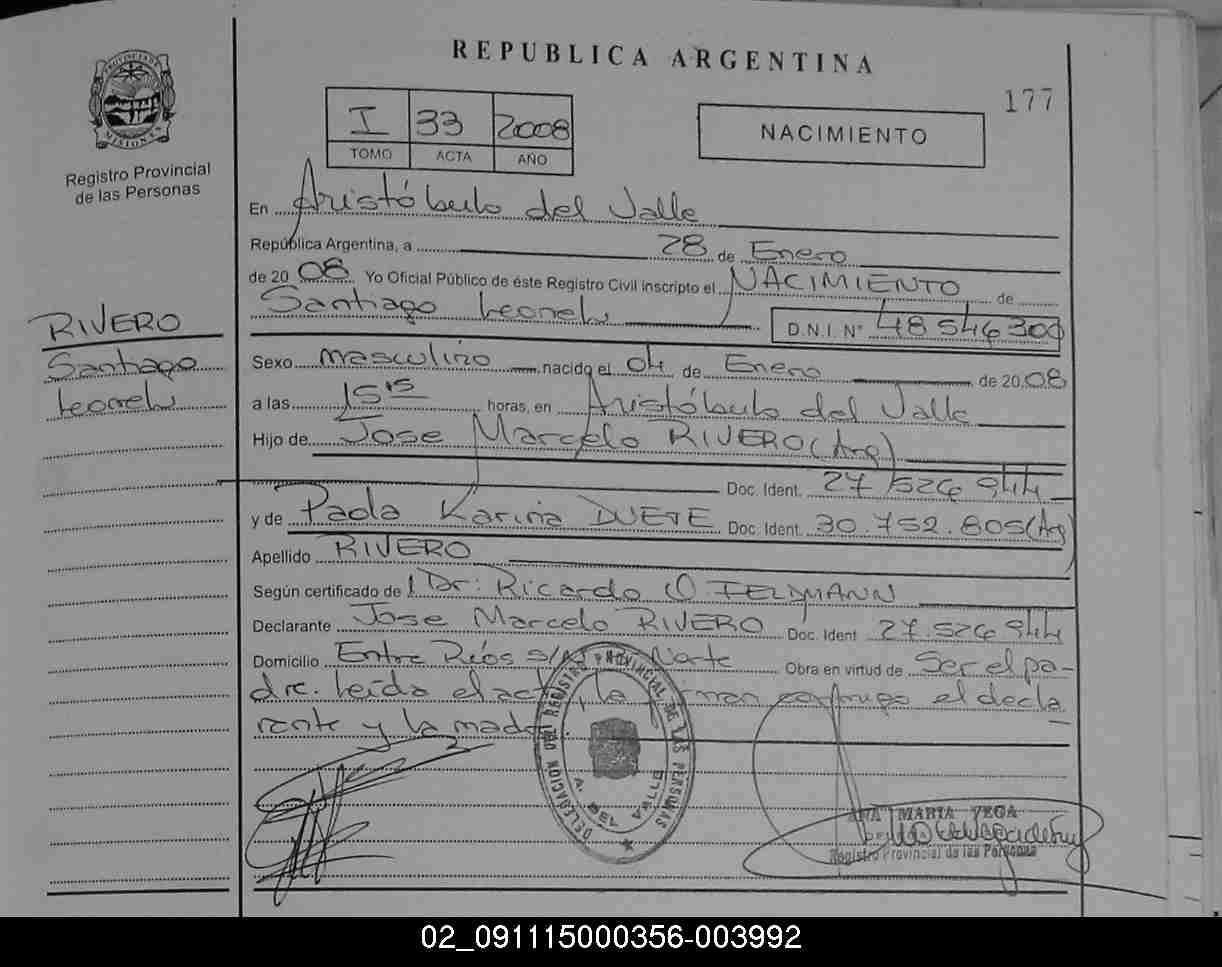 REPUBLICA ARGENTINA
177
PROVINCIA DE MISIONES
Registro Provincial
de las Personas
I 33 2008
TOMO ACTA AÑO
NACIMIENTO
En Aristóbulo del Valle
República Argentina, a 28 de Enero
de 20 08 Yo Oficial Público de éste Registro Civil inscripto el NACIMIENTO de
Santiago Leonel D.N.I. N° 48546300
RIVERO
Santiago
Leonel
Sexo masculino nacido el 04 de Enero de 20 08
a las 15 15 horas, en Aristóbulo del Valle
Hijo de Jose Marcelo RIVERO (Arg)
Doc. Ident. 27 526 944
y de Paola Karina DUETE Doc. Ident. 30.752.805 (Arg)
Apellido RIVERO
Según certificado de Dr: Ricardo O. FELDMANN
Declarante Jose Marcelo RIVERO Doc. Ident 27.526 944
Domicilio Entre Ríos S/N Norte Obra en virtud de Ser el pa-
dre. Leída el acta la firman conmigo el decla
rante y la madre
DELEGACION DEL REGISTRO PROVINCIAL DE LAS PERSONAS
A. DEL VALLE
ANA MARIA VEGA
Registro Provincial de las Personas
02_091115000356-003992